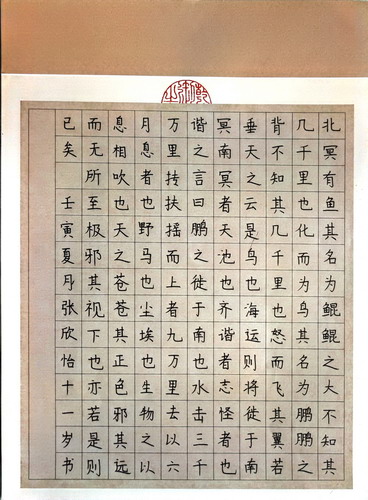 北冥有鱼其名为鲲鲲之大不知其
几千里也化而为鸟其名为鹏鹏之
背不知其几千里也怒而飞其翼若
垂天之云是鸟也海运则将徙于南
冥南冥者天池也齐谐者志怪者也
谐之言曰鹏之徙于南也水击三千
万里抟扶摇而上者九万里去以六
月息者也野马也尘埃也生物之以
息相吹也天之苍苍其正色邪其远
而无所至极邪其视下也亦若是则
已矣 壬寅夏月张欣怡十一岁书